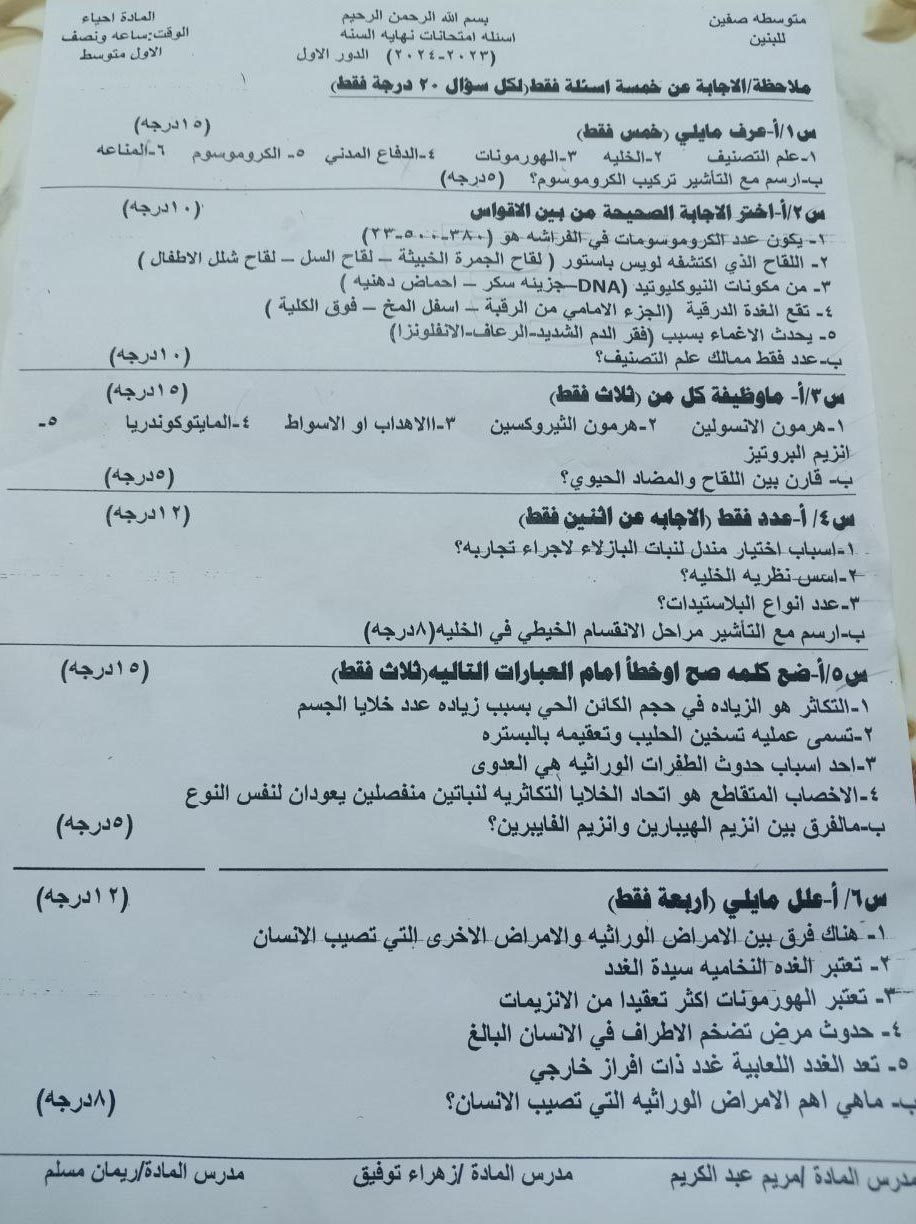 متوسطه صفين
للبنين
بسم الله الرحمن الرحيم
اسئله امتحانات نهايه السنه
(٢٠٢٣-٢٠٢٤) الدور الاول
المادة احياء
الوقت:ساعه ونصف
الاول متوسط
ملاحظة/الاجابة عن خمسة اسئلة فقط(لكل سؤال ٢٠ درجة فقط)
١
س١/أ-عرف مايلي (خمس فقط) (١٥درجه)
١-علم التصنيف ٢-الخليه ٣-الهورمونات ٤-الدفاع المدني ٥- الكروموسوم ٦-المناعه
ب-ارسم مع التأشير تركيب الكروموسوم؟ (٥درجه)
س٢/أ-اختر الاجابة الصحيحة من بين الاقواس (١٠درجه)
١- يكون عدد الكروموسومات في الفراشه هو (٣٨٠-٥٠٠-٢٣)
٢- اللقاح الذي اكتشفه لويس باستور ( لقاح الجمرة الخبيثة – لقاح السل – لقاح شلل الاطفال )
٣- من مكونات النيوكليوتيد (DNA–جزينه سكر – احماض دهنيه )
٤- تقع الغدة الدرقية (الجزء الامامي من الرقبة – اسفل المخ – فوق الكلية )
٥- يحدث الاغماء بسبب (فقر الدم الشديد-الرعاف-الانفلونزا)
ب-عدد فقط ممالك علم التصنيف؟ (١٠درجه)
س٣/أ- ماوظيفة كل من (ثلاث فقط) (١٥درجه)
١-هرمون الانسولين ٢-هرمون الثيروكسين ٣-االاهداب او الاسواط ٤-المايتوكوندريا ٥-
انزيم البروتيز
ب- قارن بين اللقاح والمضاد الحيوي؟ (٥درجه)
س٤/ أ-عدد فقط (الاجابه عن اثنين فقط) (١٢درجه)
١-اسباب اختيار مندل لنبات البازلاء لاجراء تجاربه؟
٢-اسس نظريه الخليه؟
٣-عدد انواع البلاستيدات؟
ب-ارسم مع التأشير مراحل الانقسام الخيطي في الخليه(٨درجه)
س٥/أ-ضع كلمه صح اوخطأ امام العبارات التاليه(ثلاث فقط) (١٥درجه)
١-التكاثر هو الزياده في حجم الكائن الحي بسبب زياده عدد خلايا الجسم
٢-تسمى عمليه تسخين الحليب وتعقيمه بالبستره
٣-احد اسباب حدوث الطفرات الوراثيه هي العدوى
٤-الاخصاب المتقاطع هو اتحاد الخلايا التكاثريه لنباتين منفصلين يعودان لنفس النوع
ب-مالفرق بين انزيم الهيبارين وانزيم الفايبرين؟ (٥درجه)
س٦/ أ-علل مايلي (اربعة فقط) (١٢درجه)
١- هناك فرق بين الامراض الوراثيه والامراض الاخرى التي تصيب الانسان
٢- تعتبر الغده النخاميه سيدة الغدد
٣- تعتبر الهورمونات اكثر تعقيدا من الانزيمات
٤- حدوث مرض تضخم الاطراف في الانسان البالغ
٥- تعد الغدد اللعابية غدد ذات افراز خارجي
ب- ماهي اهم الامراض الوراثيه التي تصيب الانسان؟ (٨درجه)
مدرس المادة /مريم عبد الكريم مدرس المادة /زهراء توفيق مدرس المادة/ريمان مسلم